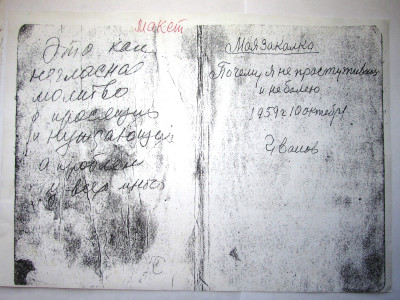 макет
Это как
негласна
молитво
о просящив
и нуждающей
а проблем
у всех много
Мая Закалка
Почему я не праступиваюс
и не болею
1959 г 10 октября
Иванов